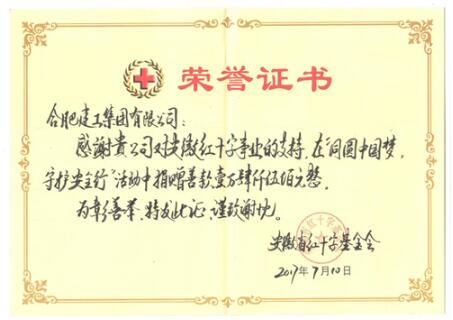 荣誉证书
合肥建工集团有限公司：
感谢贵公司对安徽红十字事业的支持，在"同圆中国梦，
守护尖兵行"活动中捐赠善款壹万肆仟伍佰元整，
为彰善举，特发此证，谨致谢忱。
安徽省红十字基金会
2017年7月10日